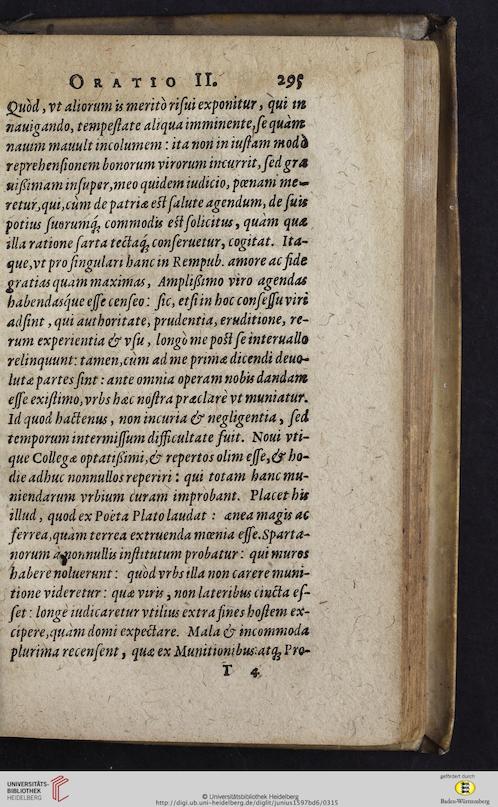 ORATIO II. 295
Quòd, vt aliorum is meritò risui exponitur, qui in
nauigando, tempestate aliqua imminente, se quàm
nauim mauult incolumem: ita non in iustam modò
reprehensionem bonorum virorum incurrit, sed gra
uißimam insuper, meo quidem iudicio, pœnam me-
retur, qui, cùm de patriæ est salute agendum, de suis
potius suorumq́, commodis est solicitus, quàm quæ
illa ratione sarta tectaq́, conseruetur, cogitat. Ita-
que, vt pro singulari hanc in Rempub. amore ac fide
gratias quam maximas, Amplißimo viro agendas
habendasque esse censeo: sic, etsi in hoc consessu viri
adsint, qui authoritate, prudentia, eruditione, re-
rum experientia & vsu, longò me post se interuallo
relinquunt: tamen, cùm ad me primæ dicendi deuo-
lutæ partes sint: ante omnia operam nobis dandam
esse existimo, vrbs hæc nostra præclarè vt muniatur.
Id quod hactenus, non incuria & negligentia, sed
temporum intermissum difficultate fuit. Noui vti-
que Collegæ optatißimi, & repertos olim esse, & ho-
die adhuc nonnullos reperiri: qui totam hanc mu-
niendarum vrbium curam improbant. Placet his
illud, quod ex Poëta Plato laudat: ænea magis ac
ferrea, quàm terrea extruenda mœnia esse. Sparta-
norum à nonnullis institutum probatur: qui muros
habere noluerunt: quòd vrbs illa non carere muni-
tione videretur: quæ viris, non lateribus cincta es-
set: longè iudicaretur vtilius extra fines hostem ex-
cipere, quàm domi expectare. Mala & incommoda
plurima recensent, quæ ex Munitionibus: atq́, Pro-
T 4.
UNIVERSITÄTS-
BIBLIOTHEK
HEIDELBERG
© Universitätsbibliothek Heidelberg
http://digi.ub.uni-heidelberg.de/diglit/junius1597bd6/0315
gefördert durch
Baden-Württemberg